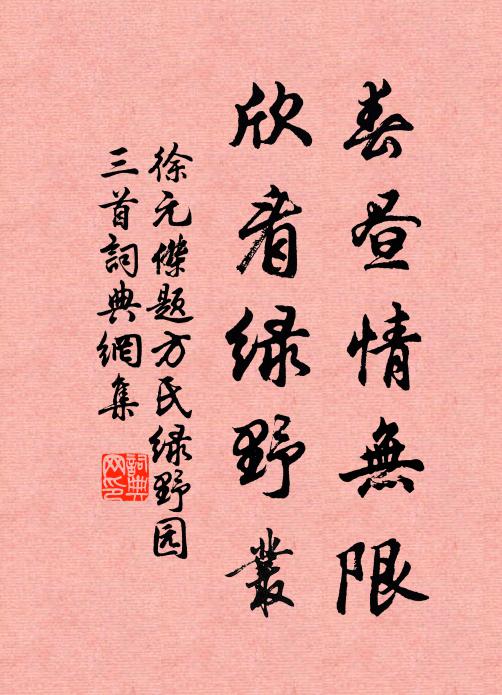 春昼情無限
欣看绿野叢
徐元傑题方氏绿野园
三首詞典網集
詞典網印